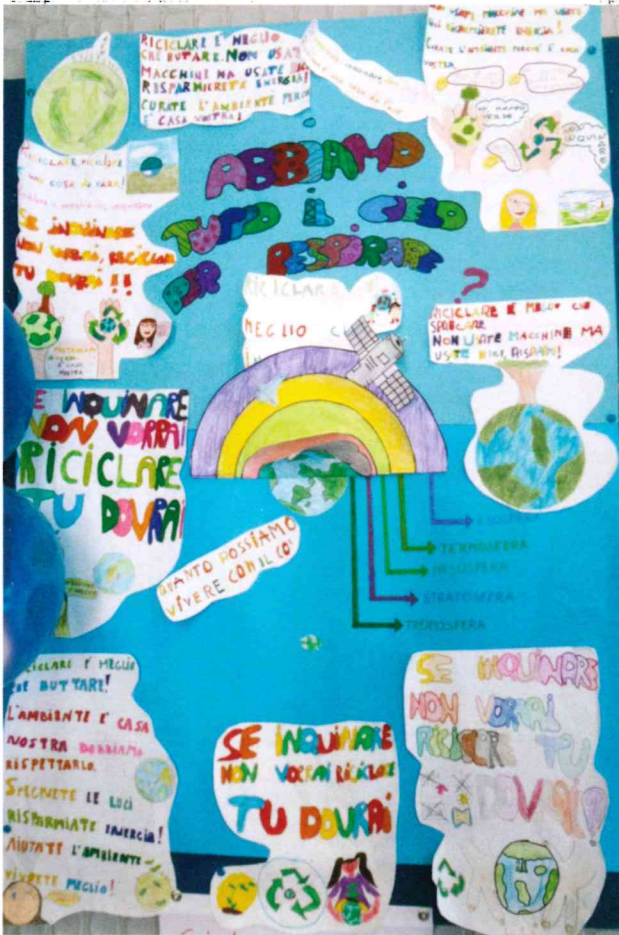 RICICLARE E' MEGLIO
CHE BUTARE. NON USAT
MACCHINE MA USATE BICI
RISPARMIERETE ENERGIA!
CURATE L'AMBIENTE PERCH
E' CASA VOSTRA!
NON USATI MACCHINE MA USATE
RISPARMIERETE ENERGIA!
CURATE L'AMBIENTE PERCHÈ È CASA
VOSTRA
ABBIAMO
TUTTO IL CIELO
PER RESPIRARE
?
SE INQUINARE
NON VORRAI, RICICLAR
TU DOVRAI !!
RICICLAR
MEGLIO CH
RICICLARE È MEGLIO CHE
SPRECARE
NON USATE MACCHINE MA
USATE BICI, RISPARMI!
E INQUINARE
NON VORRAI
RICICLARE
TU DOVRAI
ESOSFERA
TERMOSFERA
MESOSFERA
STRATOSFERA
TROPOSFERA
QUANTO POSSIAMO
VIVERE CON IL CO
ICICLARE È MEGLIO
CHE BUTTARE!
L'AMBIENTE E' CASA
NOSTRA DOBBIAMO
RISPETTARLO.
SPEGNETE LE LUCI
RISPARMIATE ENERGIA!
AIUTATE L'AMBIENTE
VIVRETE MEGLIO!
SE INQUINARE
NON VORRAI RICICLARE
TU DOVRAI
SE INQUINARE
NON VORRAI
RICICLARE TU
DOVRAI